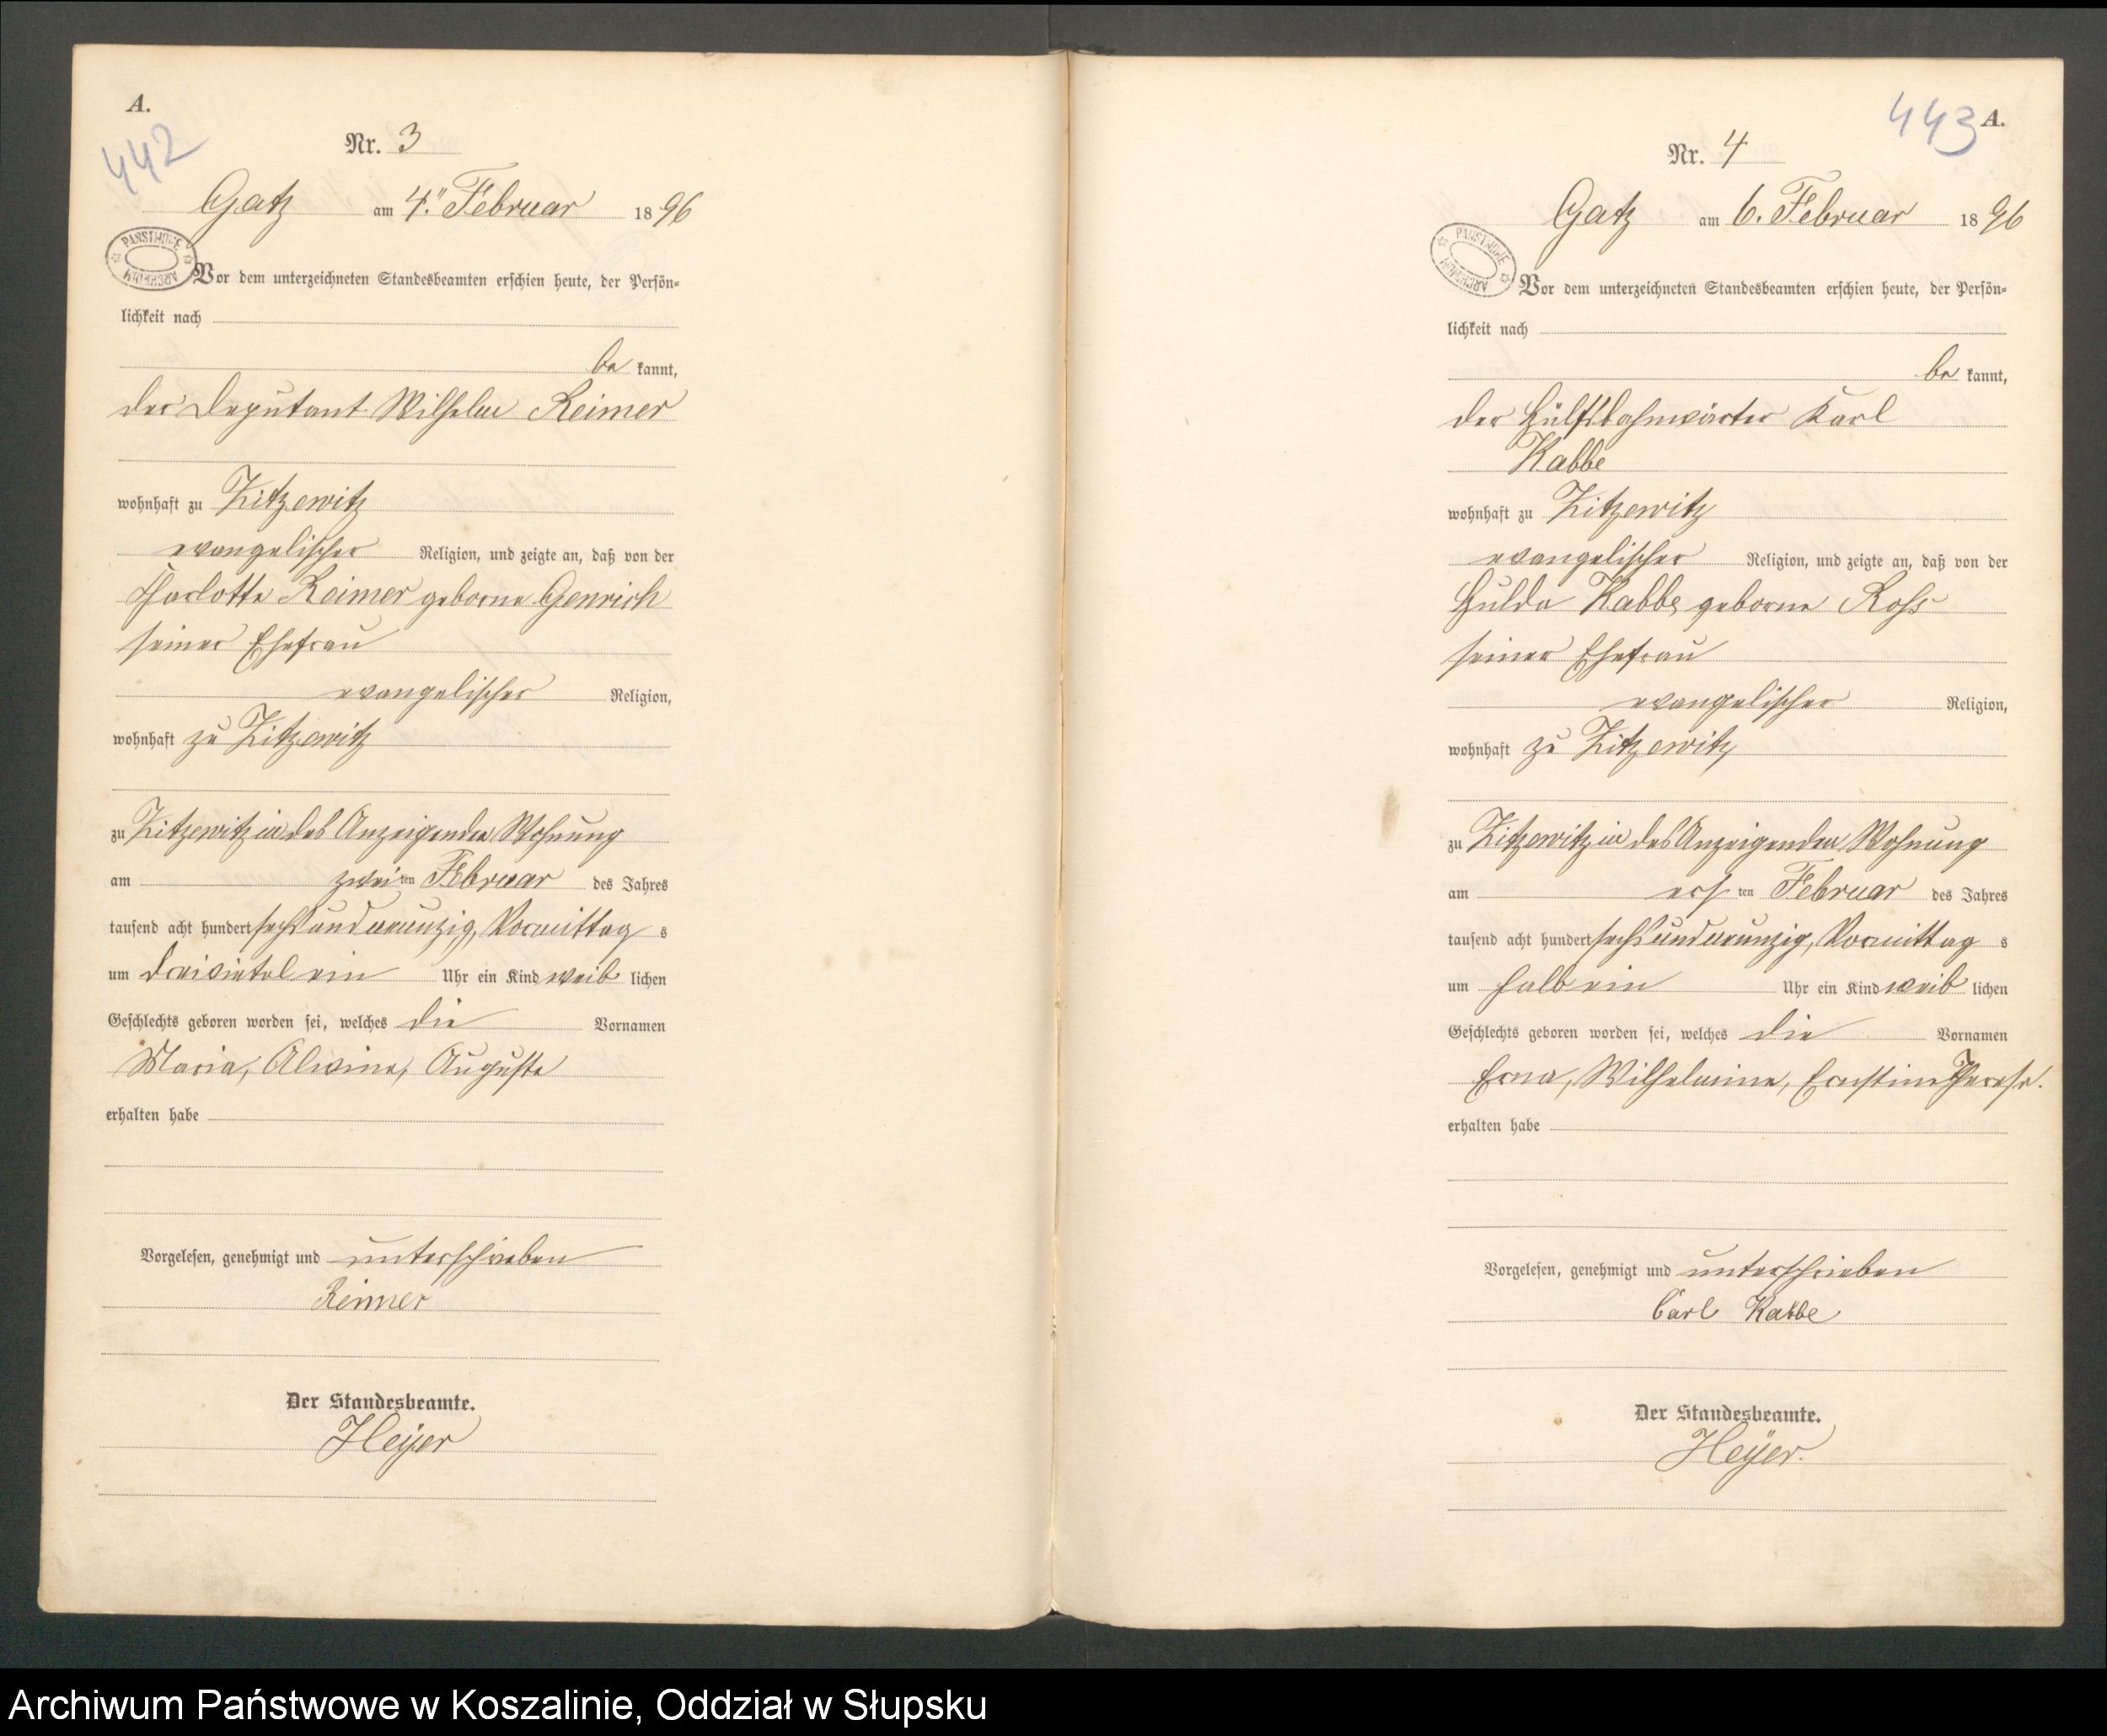 A.
442
Nr. 3
Gatz am 4. Februar 1896
PAŃSTWOWE ARCHIWUM
Vor dem unterzeichneten Standesbeamten erschien heute, der Persön-
lichkeit nach
be kannt,
der Deputant Wilhelm Reimer
wohnhaft zu Zitzewitz
evangelischer Religion, und zeigte an, daß von der
Charlotte Reimer geborne Genrich
seiner Ehefrau
evangelischer Religion,
wohnhaft zu Zitzewitz
zu Zitzewitz in des Anzeigenden Wohnung
am zweiten Februar des Jahres
tausend acht hundert sechsundneunzig, Vormittags
um dreiviertel ein Uhr ein Kind weiblichen
Geschlechts geboren worden sei, welches die Vornamen
Maria, Alwine, Auguste
erhalten habe
Vorgelesen, genehmigt und unterschrieben
Reimer
Der Standesbeamte.
Heyer
443 A.
Nr. 4
Gatz am 6. Februar 1896
PAŃSTWOWE ARCHIWUM
Vor dem unterzeichneten Standesbeamten erschien heute, der Persön-
lichkeit nach
be kannt,
der Hülfsbahnwärter Karl
Kabbe
wohnhaft zu Zitzewitz
evangelischer Religion, und zeigte an, daß von der
Hulda Kabbe geborne Roß
seiner Ehefrau
evangelischer Religion,
wohnhaft zu Zitzewitz
zu Zitzewitz in des Anzeigenden Wohnung
am ersten Februar des Jahres
tausend acht hundert sechsundneunzig, Vormittags
um halb ein Uhr ein Kind weiblichen
Geschlechts geboren worden sei, welches die Vornamen
Erna, Wilhelmine, Ernstine Therese.
erhalten habe
Vorgelesen, genehmigt und unterschrieben
Carl Kabbe
Der Standesbeamte.
Heyer.
Archiwum Państwowe w Koszalinie, Oddział w Słupsku